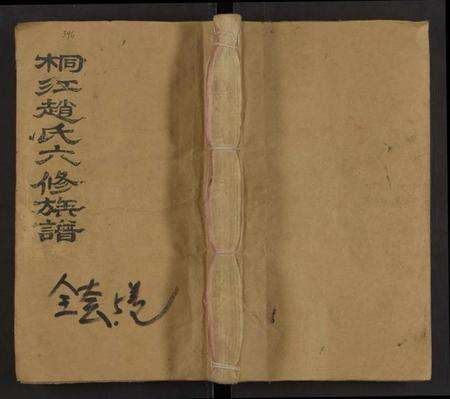 346
桐江趙氏六修族譜
全套5卷